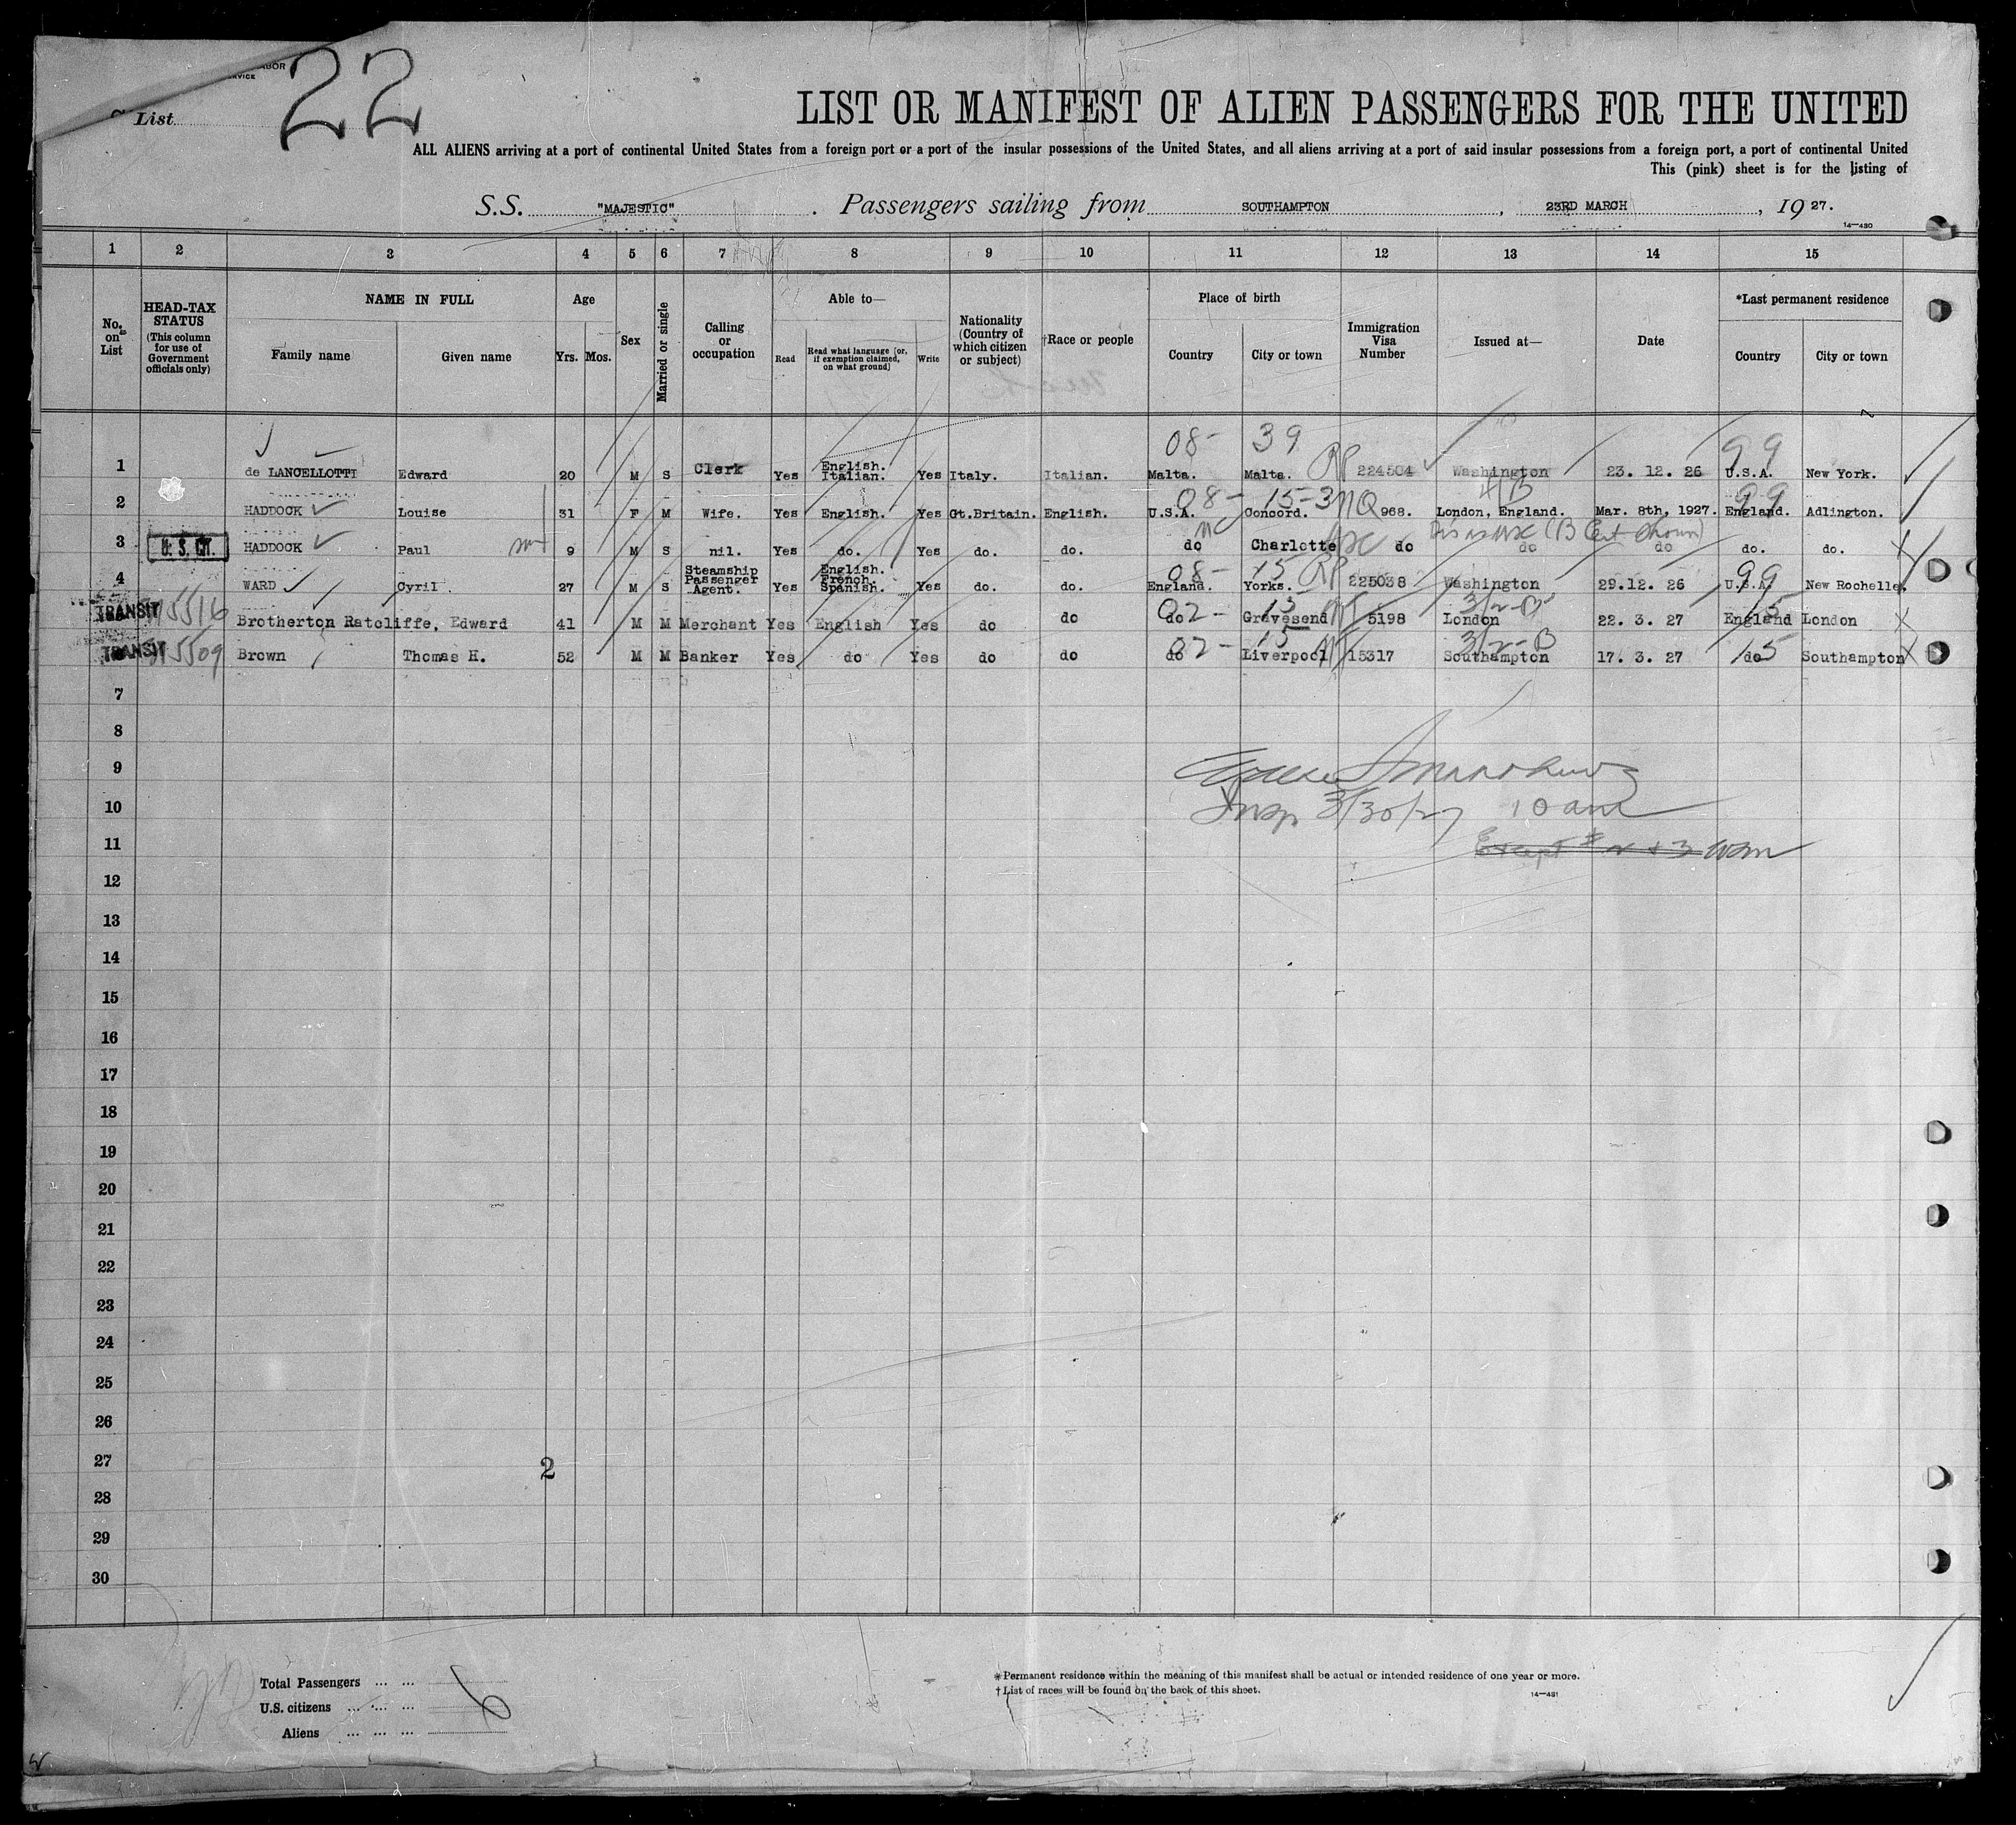 ABOR
RVICE
List 22
LIST OR MANIFEST OF ALIEN PASSENGERS FOR THE UNITED
ALL ALIENS arriving at a port of continental United States from a foreign port or a port of the insular possessions of the United States, and all aliens arriving at a port of said insular possessions from a foreign port, a port of continental United
This (pink) sheet is for the listing of
S.S. "MAJESTIC" . Passengers sailing from SOUTHAMPTON , 23RD MARCH , 19 27.
14—430
1 2 3 4 5 6 7 8 9 10 11 12 13 14 15
No. on List
HEAD-TAX STATUS (This column for use of Government officials only)
NAME IN FULL
Family name Given name
Age
Yrs. Mos.
Sex
Married or single
Calling or occupation
Able to—
Read
Read what language [or, if exemption claimed, on what ground]
Write
Nationality (Country of which citizen or subject)
†Race or people
Place of birth
Country City or town
Immigration Visa Number
Issued at—
Date
*Last permanent residence
Country City or town
08- 39 99
1 de LANCELLOTTI Edward 20 M S Clerk Yes English. Italian. Yes Italy. Italian. Malta. Malta. RP 224504 Washington 23. 12. 26 U.S.A. New York.
08- 15-3 NQ 4/B 99
2 HADDOCK Louise 31 F M Wife. Yes English. Yes Gt.Britain. English. U.S.A. Concord. 968. London, England. Mar. 8th, 1927. England. Adlington.
NC USC (B Cert shown)
3 U.S. CIT. HADDOCK Paul 9 M S nil. Yes do. Yes do. do. do Charlotte do do do do. do.
08- 15 RP 99
4 WARD Cyril 27 M S Steamship Passenger Agent. Yes English. French. Spanish. Yes do. do. England. Yorks. 225038 Washington 29.12. 26 U.S.A. New Rochelle.
02- 15 3/2-B 15
TRANSIT 5516 Brotherton Ratcliffe, Edward 41 M M Merchant Yes English Yes do do do Gravesend 5198 London 22. 3. 27 England London
02- 15 3/2-B 15
TRANSIT 5509 Brown Thomas H. 52 M M Banker Yes do Yes do do do Liverpool 15317 Southampton 17. 3. 27 do Southampton
7
8
9
10 Insp 3/30/27 10 am
11 Except # 2 + 3
12
13
14
15
16
17
18
19
20
21
22
23
24
25
26
27 2
28
29
30
Total Passengers ... ...
U.S. citizens ... ... ... 6
Aliens ... ... ...
*Permanent residence within the meaning of this manifest shall be actual or intended residence of one year or more.
†List of races will be found on the back of this sheet.
14—431